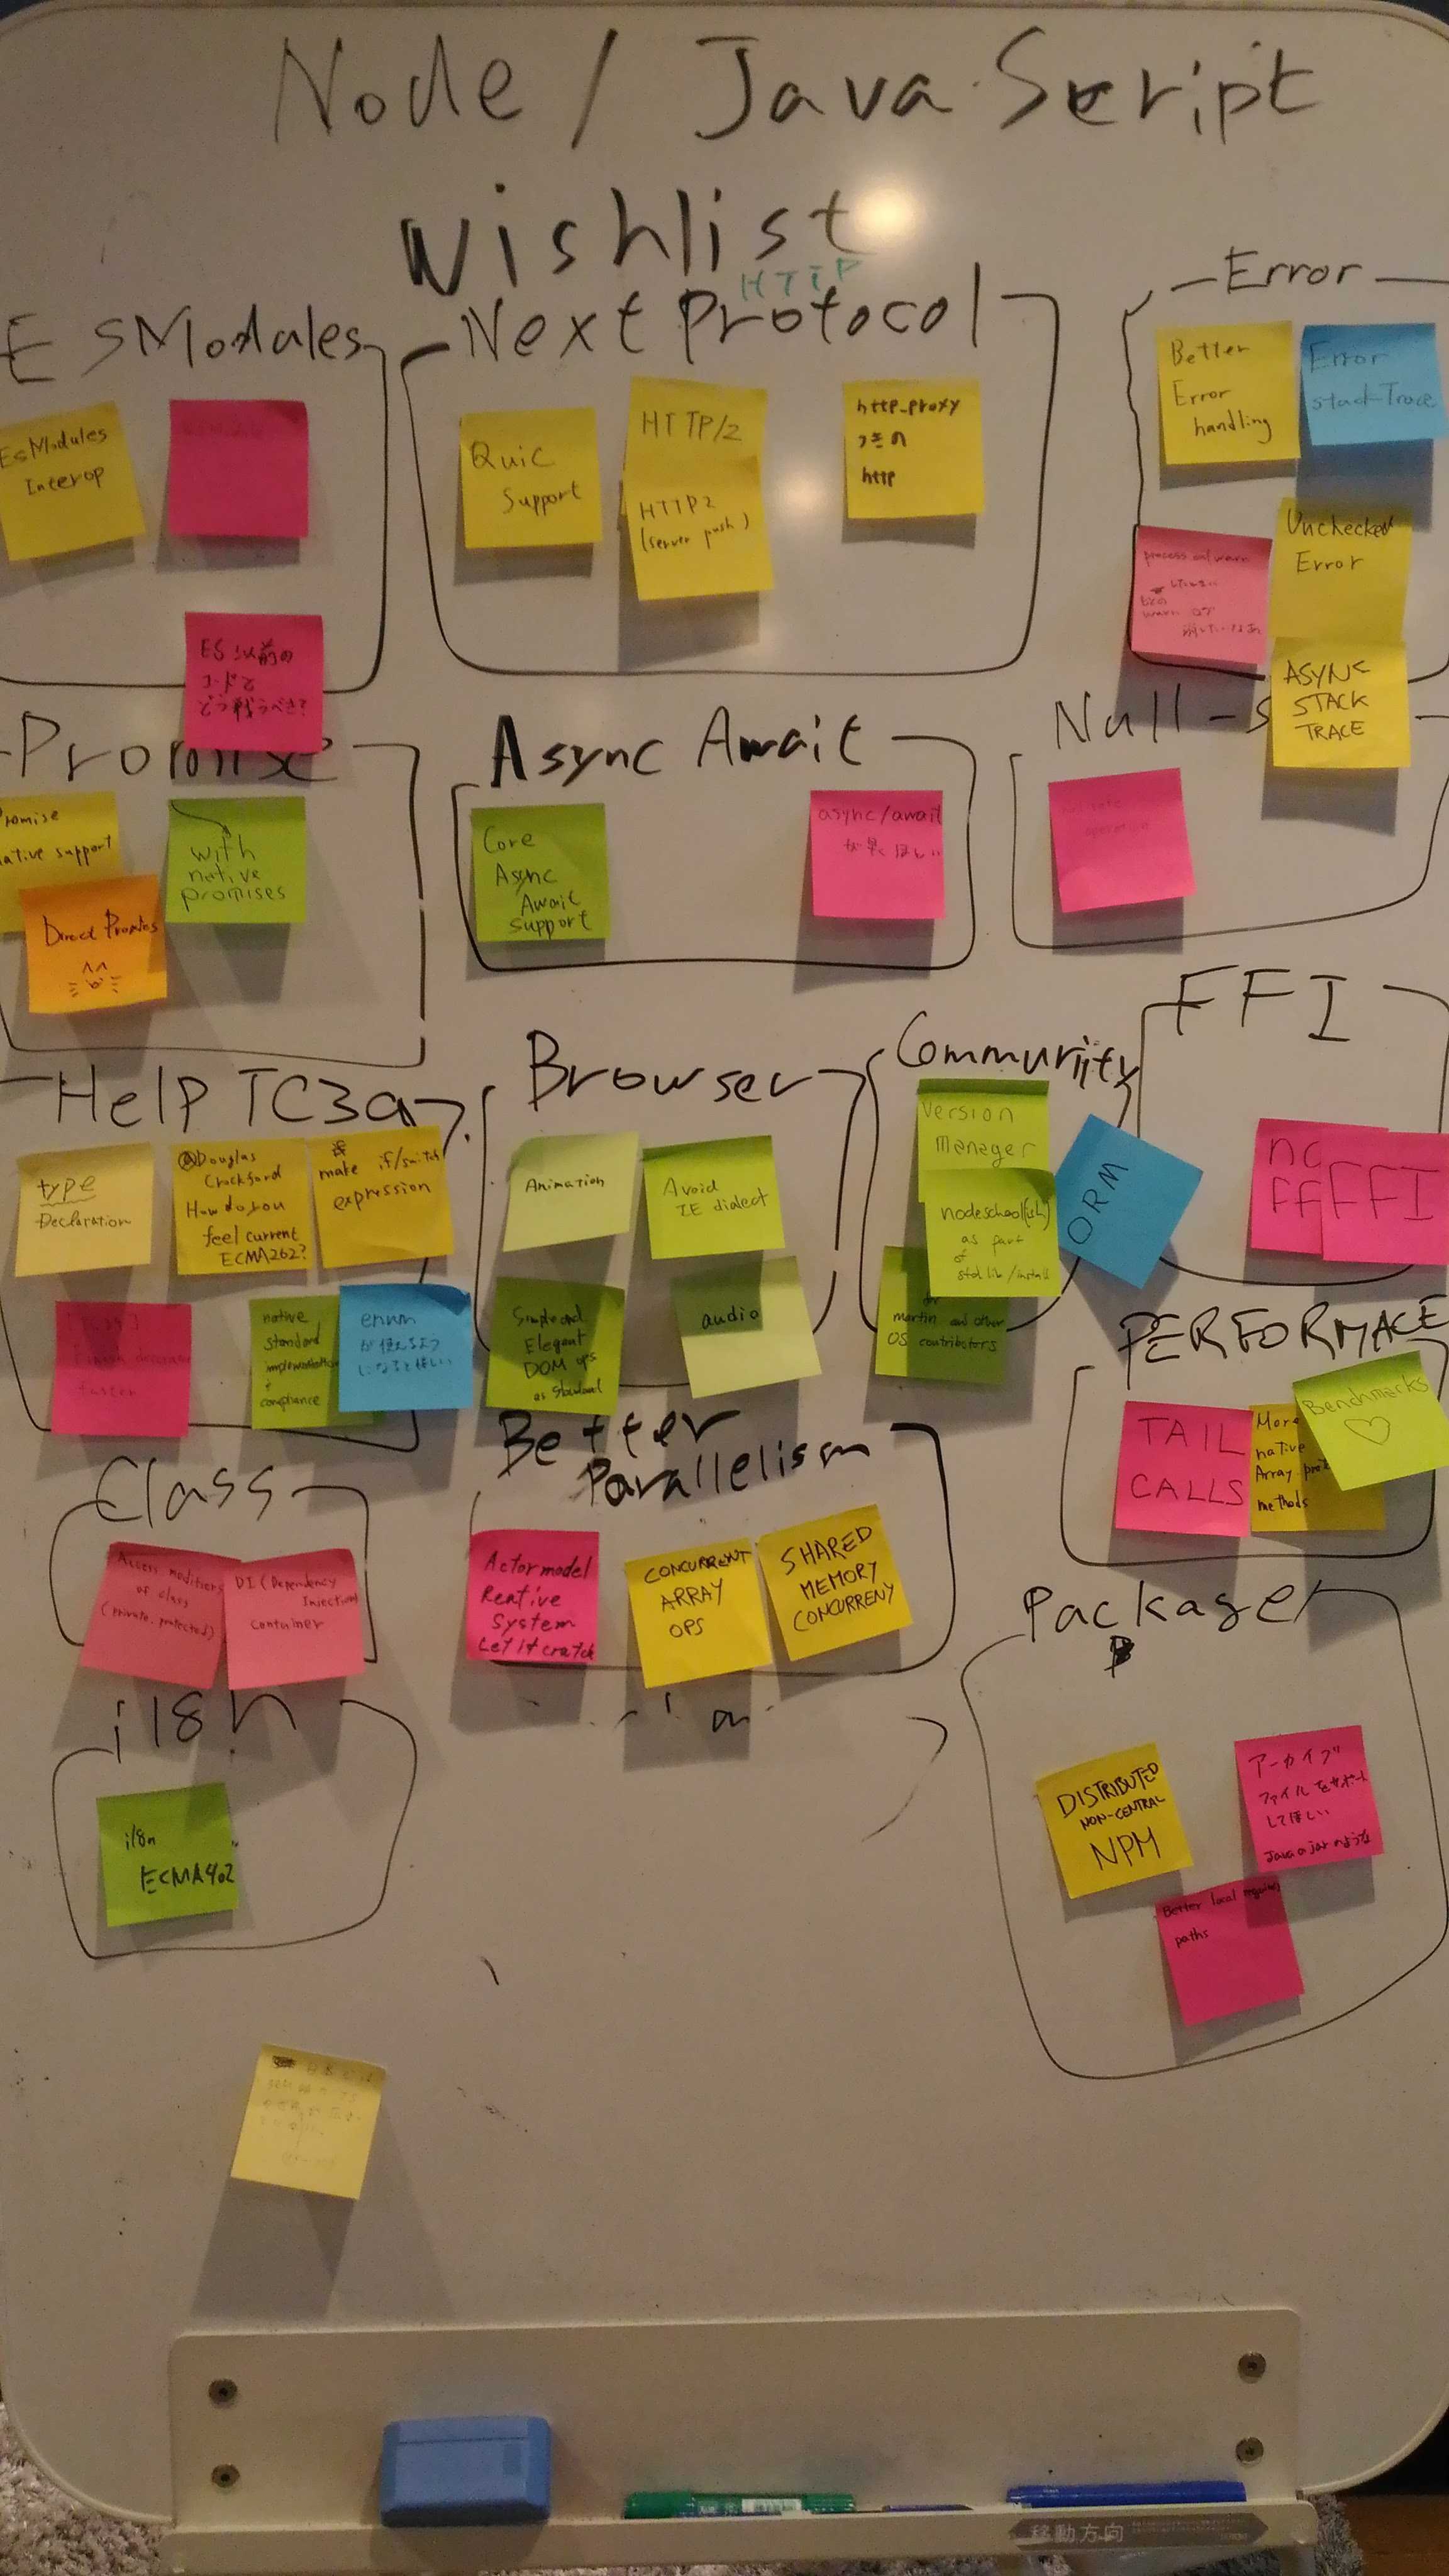 Node / JavaScript
Wishlist
HTTP
ESModules
EsModules
Interop
ES以前の
コードと
どう戦うべき?
Next Protocol
Quic
Support
HTTP/2
HTTP2
(server push)
http_proxy
つきの
http
Error
Better
Error
handling
Error
stack Trace
Unchecked
Error
ASYNC
STACK
TRACE
Promise
Promise
native support
with
native
promises
Direct Proxies
Async Await
Core
Async
Await
support
async/await
が早くほしい
Null-s
Help TC39
type
Declaration
@Douglas
Crockford
How do you
feel current
ECMA262?
make if/switch
expression
faster
native
standard
implementation
+
compliance
enum
が使えるよう
になると嬉しい
Browser
Animation
Avoid
IE dialect
Simple and
Elegant
DOM ops
as standard
audio
Community
Version
manager
nodeschool(ish)
as part
of
std lib/install
for
martin and other
OS contributors
ORM
FFI
nc
FF
FFI
PERFORMACE
TAIL
CALLS
More
native
Array prot
methods
Benchmarks
♡
Class
Access modifiers
of class
(private, protected)
DI (Dependency
Injection)
Container
Better
Parallelism
Actor model
Reative
System
Let it cratch
CONCURRENT
ARRAY
OPS
SHARED
MEMORY
CONCURRENY
Package
DISTRIBUTED
NON-CENTRAL
NPM
アーカイブ
ファイルをサポート
してほしい
Javaのjarのような
Better local require
paths
i18n
i18n
ECMA402
移動方向